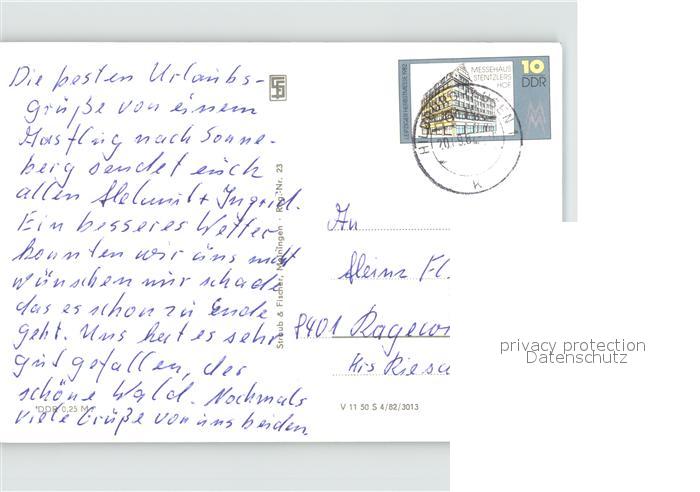 Die besten Urlaubs-
grüße von einem
Ausflug nach Sonne-
berg sendet euch
allen Helmut + Ingrid.
Ein besseres Wetter
konnten wir uns nicht
wünschen nur schade
das es schon zu Ende
geht. Uns hat es sehr
gut gefallen, der
schöne Wald. Nochmals
viele Grüße von uns beiden
DDR 0,25 M
Straub & Fischer, Meiningen · Reg.-Nr. 23
LEIPZIGER HERBSTMESSE 1982
MESSEHAUS
STENTZLERS
HOF
10
DDR
An
Heinz Fl.
8401 Ragewi
Krs Riesa
V 11 50 S 4/82/3013
privacy protection
Datenschutz